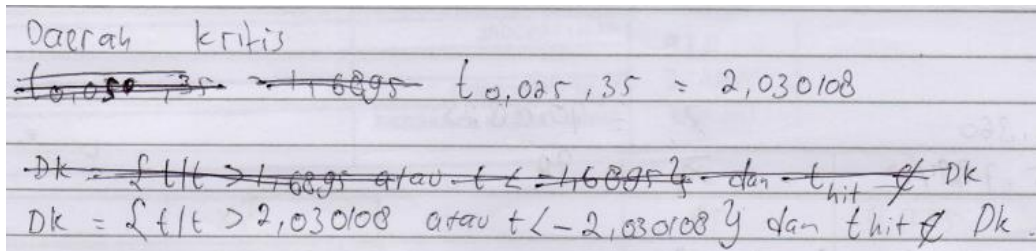 Daerah kritis
t0,050,35 = 1,6895 t0,025,35 = 2,030108
DK = {t|t > 1,6895 atau t < -1,6895} dan t hit ∉ DK
DK = {t|t > 2,030108 atau t < -2,030108} dan t hit ∉ DK